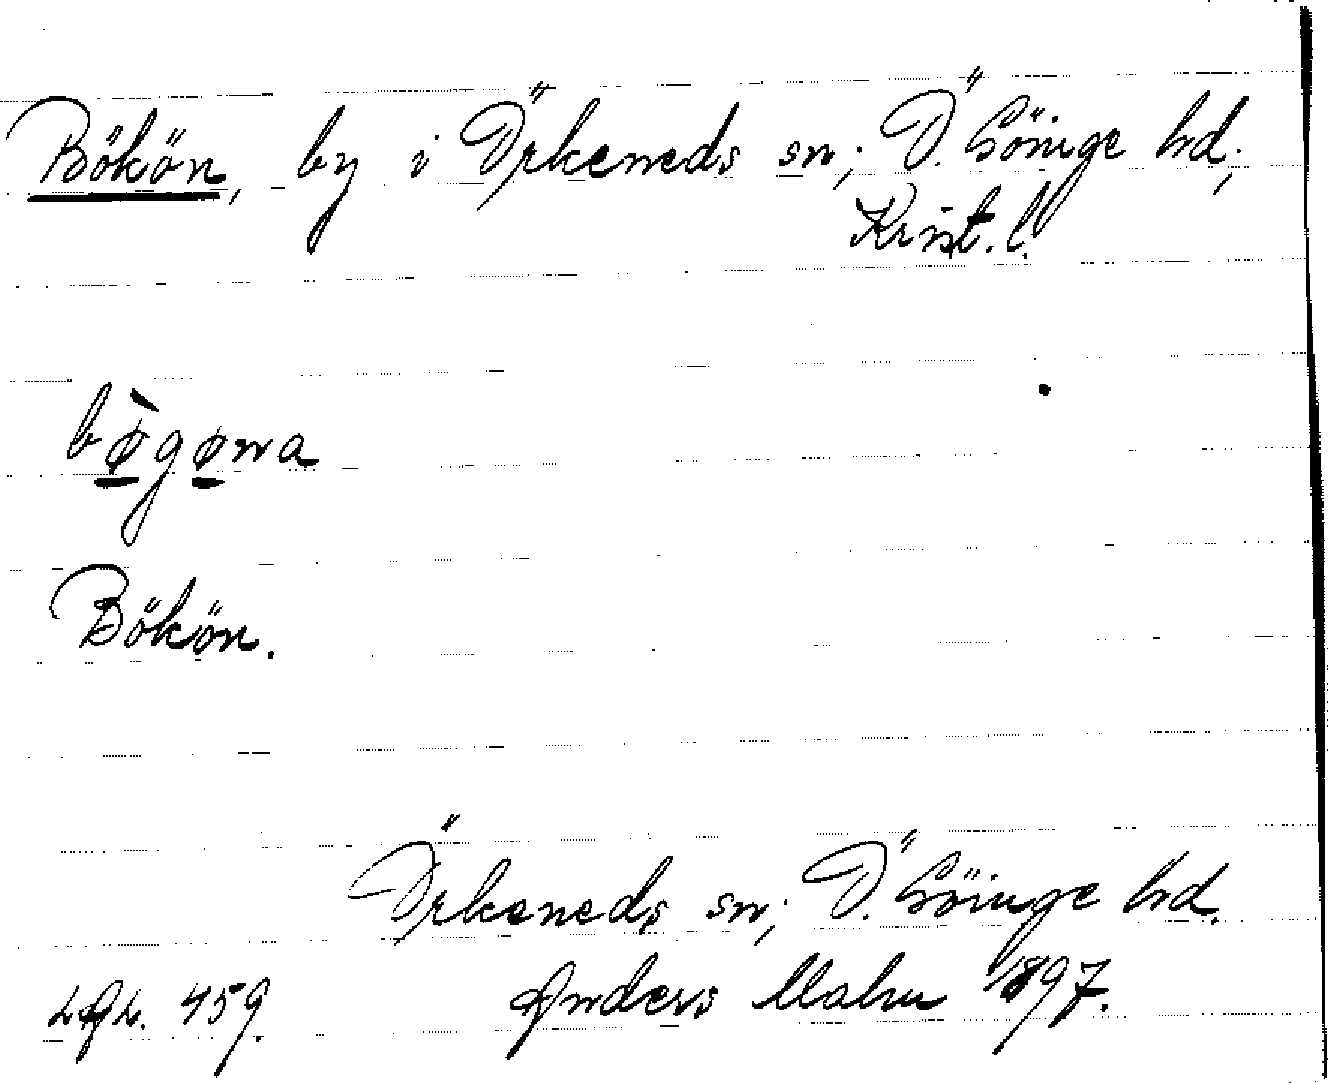 Bökön, by i Örkeneds sn; Ö. Göinge hd.,
Krist. l.
bø̱̀gø̱na
Bökön.
Örkeneds sn; Ö. Göinge hd.
459. Anders Malm 1897.